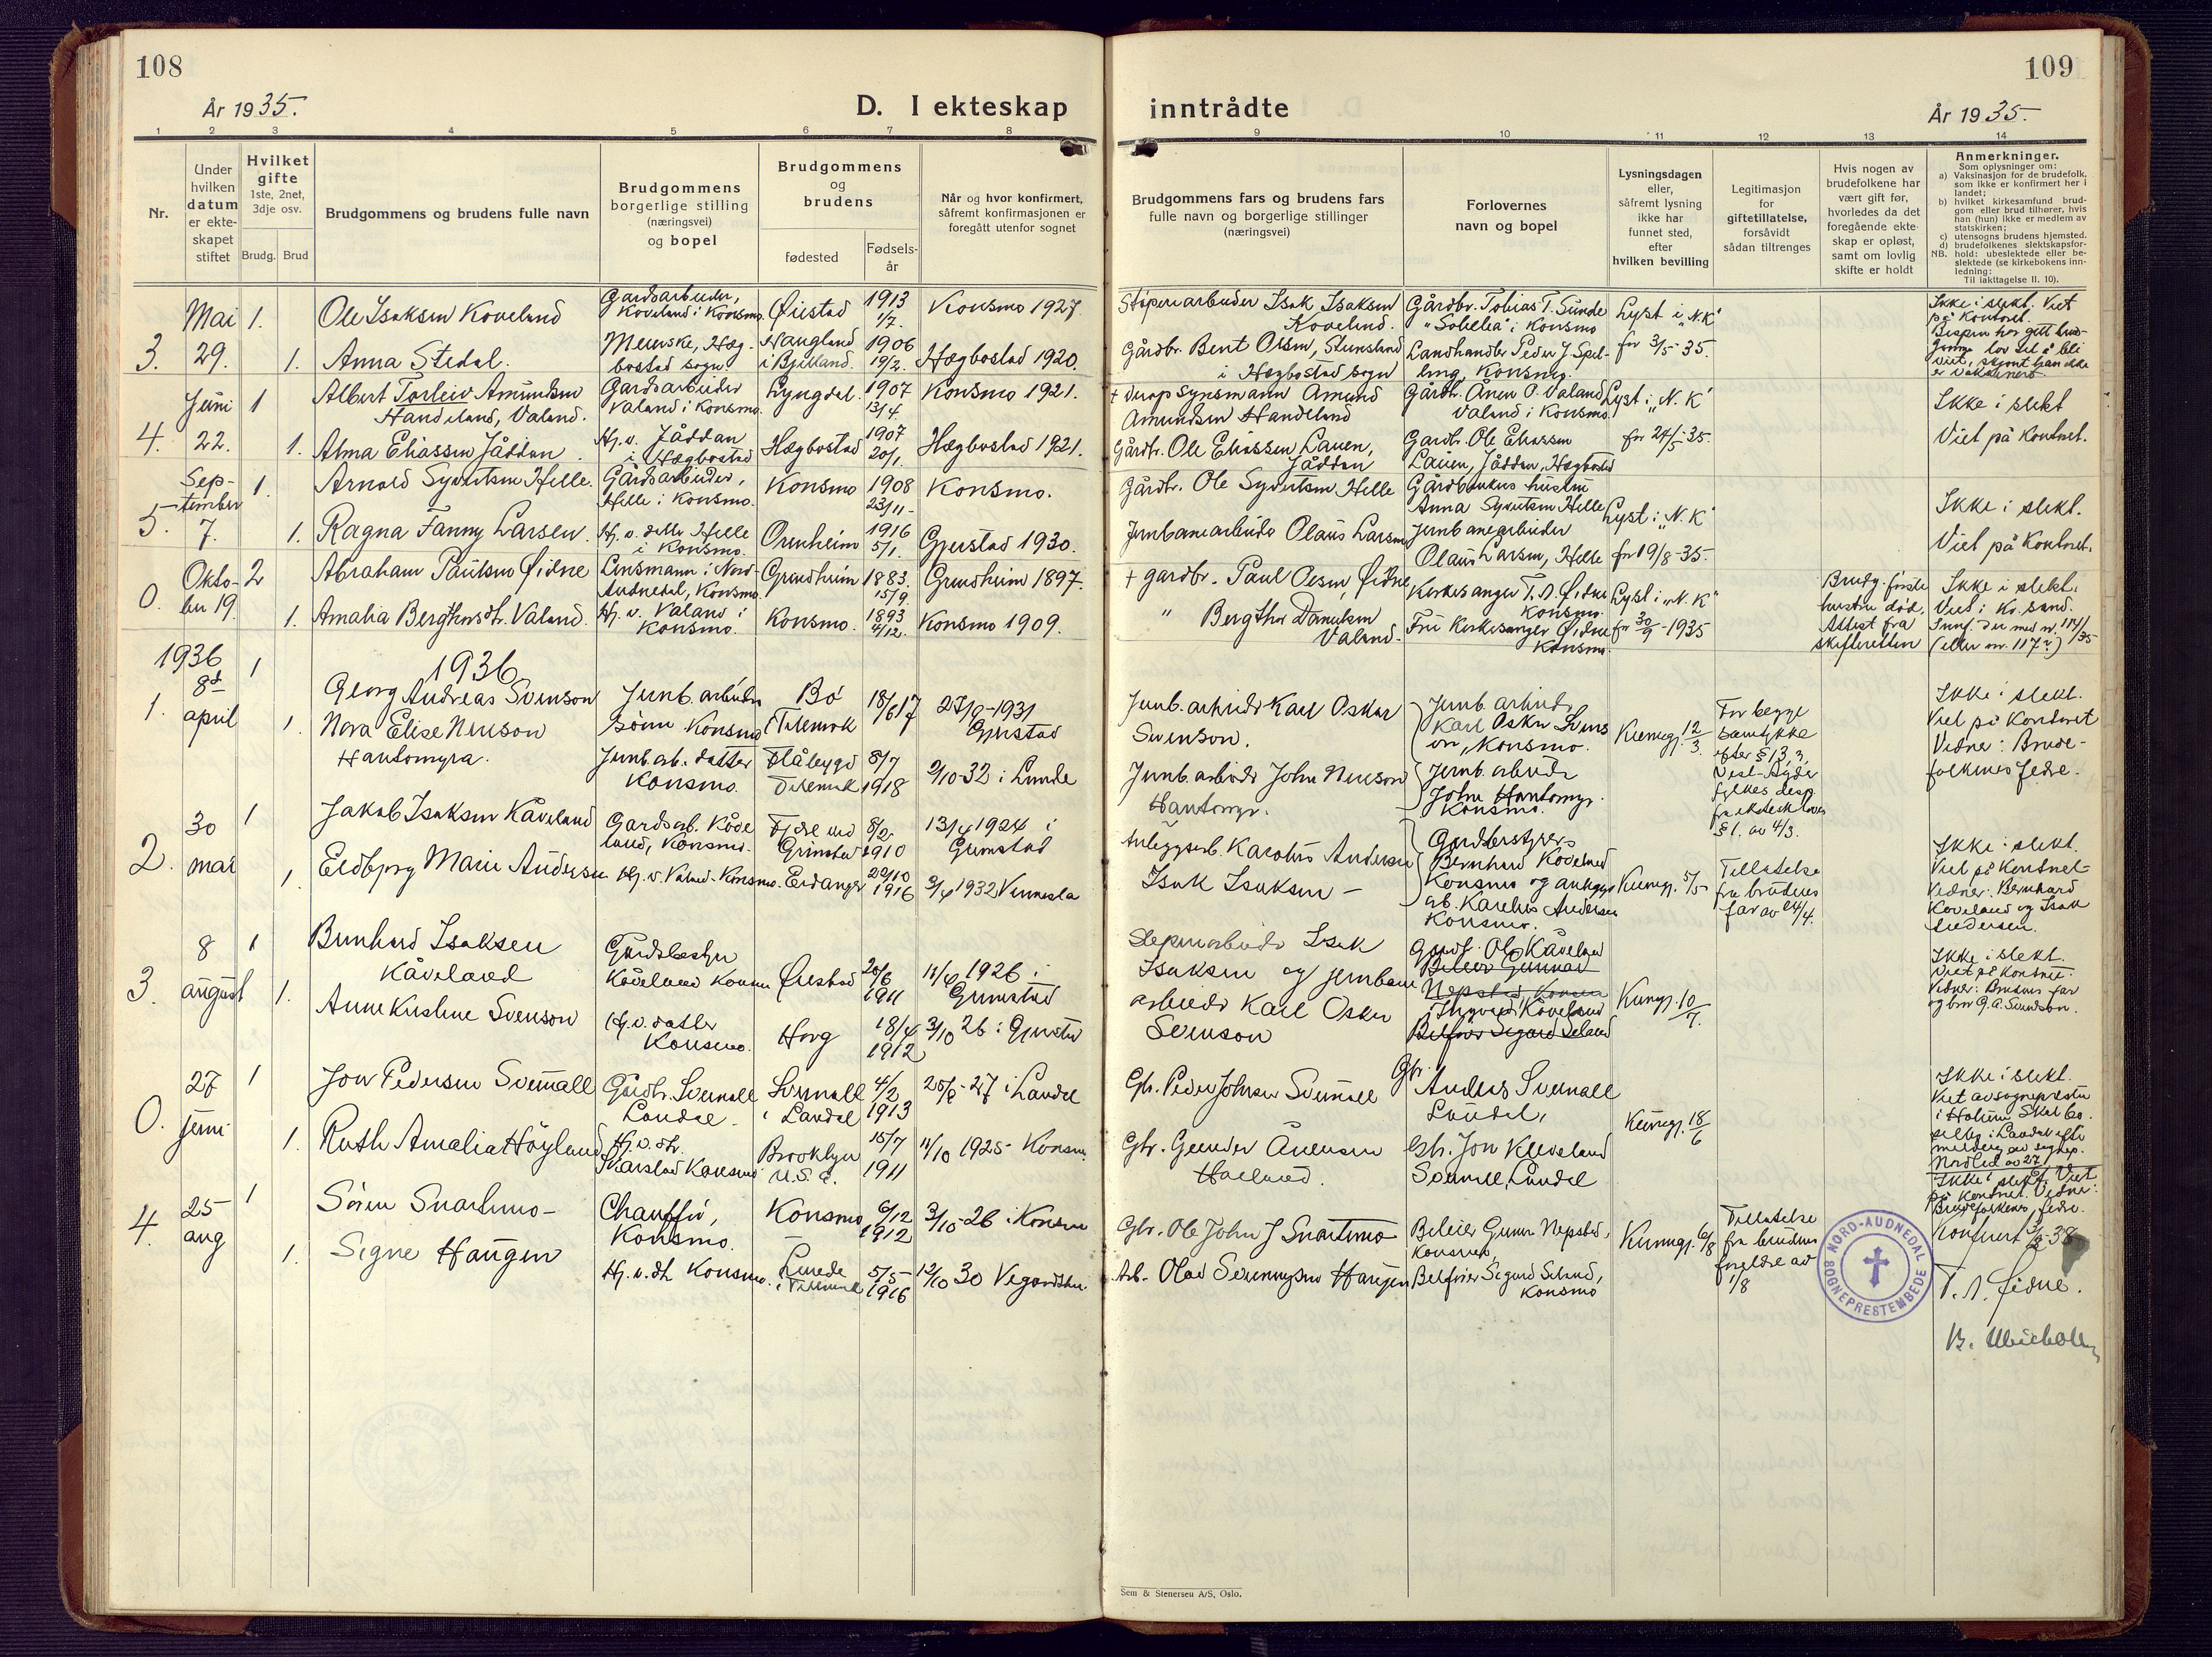 108
År 1935.
D. I ekteskap
1 2 3 4 5 6 7 8
Nr.
Under
hvilken
datum
er ekte-
skapet
stiftet
Hvilket
gifte
1ste, 2net,
3dje osv.
Brudg. Brud
Brudgommens og brudens fulle navn
Brudgommens
borgerlige stilling
(næringsvei)
og bopel
Brudgommens
og
brudens
fødested
Fødsels-
år
Når og hvor konfirmert,
såfremt konfirmasjonen er
foregått utenfor sognet
Mai 1. Ole Isaksen Koveland
Gardsarbeider,
Koveland i Konsmo.
Øiestad
1913
1/7.
Konsmo 1927.
3. 29. 1. Anna Stedal.
Meierske, Hæg-
bostad sogn
Haugland
i Bjelland.
1906
19/2.
Hægbostad 1920.
Juni 1 Albert Torleiv Amundsen
Handeland, Valand.
Gardsarbeider
Valand i Konsmo.
Lyngdal.
1907
13/4
Konsmo 1921.
4. 22. 1. Alma Eliassen Jåddan.
Hj. v. Jåddan
i Hægbostad
Hægbostad
1907
20/1.
Hægbostad 1921.
Sep-
tember
1. Arnold Syvertsen Helle.
Gårdsarbeider,
Helle i Konsmo.
Konsmo
1908
23/11-
Konsmo.
5. 7. 1. Ragna Fanny Larsen.
Hj. v. Helle
i Konsmo.
1916
5/1.
Gjerstad 1930.
Okto-
ber 19.
2 Abraham Paulsen Øidne
Lensmann i Nord-
Audnedal, Konsmo.
Grindheim
1883.
15/9.
Grindheim 1897.
0. 1. Amalia Bergthorsdt. Valand.
Hj. v. Valand i
Konsmo.
Konsmo.
1893
4/12.
Konsmo 1909.
1936
1936
8d
1. april
1
Georg Andreas Svenson
Jernb. arbeider
sønn Konsmo
Bø
i Telemark
18/6 17
27/9-1931
Gjerstad
1. Nora Elise Nenson
Hantomyra.
Jernb. arb. datter
Konsmo.
Flåbygd
Telemark
8/7
1918
9/10-32 i Lunde
30
2. mai
1 Jakob Isaksen Kåveland
Gardsarb. Kåve
land, Konsmo.
Fjære ved
Grimstad
8/2
1910
13/4 1924 i
Grimstad
1 Eldbjørg Marie Andersen
Hj. v. Valand - Konsmo.
Eidanger
29/10
1916
3/4 1932 Vennesla
8
3. august
1 Bernhard Isaksen
Kåveland
Gårdsbestyr
Kåveland Konsm
Øiestad
20/6
1911
11/4 1926 i
Grimstad
1. Anne Kristine Svenson
Hj. v. datter
Konsmo.
Horg
18/4
1912
3/10 26 i Gjerstad
27
0. juni
1 Jon Pedersen Sveinall
Gårdbr. Sveinall
Laudal.
Sveinall
i Laudal
4/2
1913
i Laudal
1. Ruth Amalia Høyland
Hj. v. dtr.
Konsmo
Brooklyn
U.S.A.
15/7
1911
11/10 1925 Konsm.
25
4. aug
1 Søren Snartemo
Chauffør,
Konsmo.
Konsmo
6/12
1912
3/10-26 i Konsmo
1. Signe Haugen
Hj. v. dt. Konsmo.
Lunde
i Telemark
5/5-
1916
12/10 30 Vegårdshei
109
inntrådte
År 1935.
9 10 11 12 13 14
Brudgommens fars og brudens fars
fulle navn og borgerlige stillinger
(næringsvei)
Forlovernes
navn og bopel
Lysningsdagen
eller,
såfremt lysning
ikke har
funnet sted,
efter
hvilken bevilling
Legitimasjon
for
giftetillatelse,
forsåvidt
sådan tiltrenges
Hvis nogen av
brudefolkene har
vært gift før,
hvorledes da det
foregående ekte-
skap er opløst,
samt om lovlig
skifte er holdt
Anmerkninger.
Som oplysninger om:
a) Vaksinasjon for de brudefolk,
som ikke er konfirmert her i
landet;
b) hvilket kirkesamfund brud-
gom eller brud tilhører, hvis
han (hun) ikke er medlem av
statskirken;
c) utensogns brudens hjemsted.
d) brudefolkenes slektskapsfor-
hold: ubeslektede eller be-
slektede (se kirkebokens inn-
ledning:
NB. Til iakttagelse II. 10).
Støperiarbeider Isak Isaksen
Koveland.
Gårdbr. Tobias T. Sunde
"Solielia" i Konsmo
Lyst i "N.K"
for 3/5-35.
Gårdbr. Bent Olsen, Stensland
i Hægbostad sogn
Landhandler Peder J. Spel-
ling, Konsmo.
Ikke i slekt. Viet
på Kontoret.
Bispen har gitt brud-
gom lov til å bli
viet, skjønt han ikke
er vaksinert.
Amund
Amundsen Handeland
Gårdbr. Ånen O. Valand
Valand i Konsmo.
Lyst i "N.K"
for 24/5-35.
Gårdbr. Ole Eliassen Lauen,
Jåddan
Gardbr. Ole Eliassen
Lauen, Jåddan, Hægbostad
Ikke i slekt
Viet på Kontoret.
Gårdbr. Ole Syvertsen Helle
Gårdbrukers hustru
Anna Syvertsen Helle
Lyst i "N.K"
for 19/8-35.
Jernbanearbeider Olaus Larsen
Jernbanearbeider
Olaus Larsen, Helle
Ikke i slekt.
Viet på Kontoret.
+ gardbr. Paul Olsen, Øidne,
Kirkesanger T. A. Øidne
Konsmo.
Lyst i "N.K"
for 30/9-1935
" Bergthor Danielsen
Valand.
Fru Kirkesanger Øidne
Konsmo.
Brudg. første
hustru død.
Attest fra
skifteretten
Ikke i slekt.
Viet i Kr.sand.
(eller nr. 117?)
Jernb. arbeider Karl Oskar
Svenson.
Jernb. arbeider
Karl Oskar Svens
on, Konsmo.
Kunngj. 12/3.
For begge
samtykke
efter § 13,3,
Vest-Agder
fylkes desp.
fra ekteskapslovens
§ 1. av 4/3.
Jernb. arbeider John Nenson
Hantomyr.
Jernb. arbeider
John Hantomyr.
Konsmo.
Ikke i slekt.
Viet på Kontoret
Vidner: Brude-
folkenes fedre.
Anleggsarb. Karolius Andersen
Isak Isaksen -
Gardbestyrer
Bernhard Koveland
Konsmo og anleggs
arb. Karolius Andersen
Konsmo.
Kunngj. 5/5
Tillatelse
fra brudens
far av 24/4.
Ikke i slekt.
Viet på Kontoret
Vidner: Bernhard
Koveland og Isak
Andersen.
Støperiarbeider Isak
Isaksen og jernbane
arbeider Karl Oskar
Svenson
Gardbr. Ole Kåveland
Beleier Gunnar
Nepstad Konsmo
Kåveland
Belfrier Sigurd Seland
Kunngj. 10/7.
Ikke i slekt.
Viet på Kontoret.
Vidner: Brudens far
og bror G. A. Svendson.
Gbr. Peder Johnsen Sveinall
Gbr. Anders Sveinall
Laudal,
Kunngj. 18/6
Gbr. Gunder Ånensen
Høiland.
Gbr. Jon Kleveland
Sveinall, Laudal
Ikke i slekt.
Viet av sogneprest
i Holum Skal
selby i Laudal efter
melding av sognep.
Gbr. Ole John J Snartemo
Beleier Gunnar Nepstad,
Konsmo,
Kunngj. 6/8
Tillatelse
fra brudens
foreldre av
1/8
Arb. Olav Haugen
Belfrier Sigurd Seland,
Konsmo
Ikke i slekt. Viet
på Kontoret. Vidner:
Brudefolkenes fedre.
Konferert -38
T. A. Øidne.
NORD-AUDNEDAL
SOGNEPRESTEMBEDE
Sem & Stenersen A/S, Oslo.